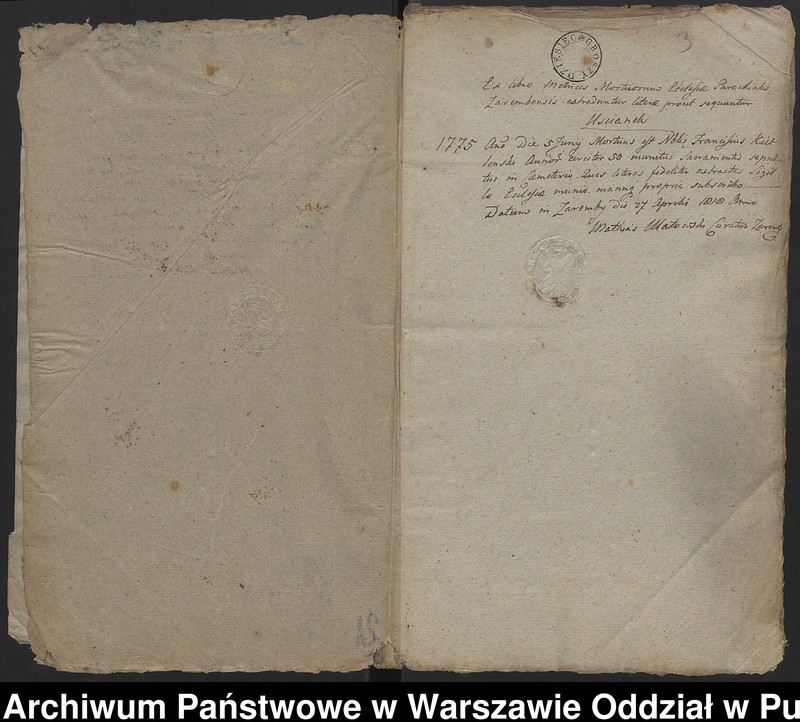 3
DZIESIĘĆ GROSZY
Ex libro Metrices Mortuorum Ecclesiæ Parochialis
Zarembensis extraduntur literæ prout sequuntur
Uscianek
1775 Anō Die 5 Junij Mortuus est Nblis Franciscus Kiet
lenski Annor̄ circiter 50 munitus Sacramentis sepul
tus in Cæmeterio. Quas literas fideliter extractas Sigil
lo Ecclesiæ munio, manuq propria subscribo
Datum in Zaromby Die 27 Aprilis 1818 Anno
Mathias Curatus
21
Archiwum Państwowe w Warszawie Oddział w Pu